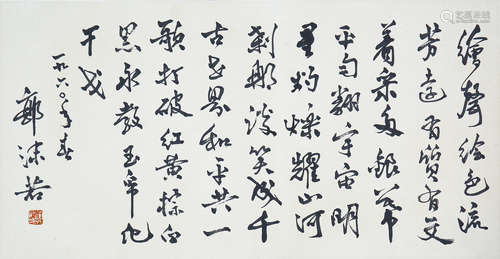 繪聲绘色流
芳遠有質有文
着采多銀幕
平勻翻宇宙明
星灼爍耀山河
刹那談笑成千
古世界和平共一
歌打破紅黄標白
黑永教玉帛化
干戈
一九六〇年春
郭沫若